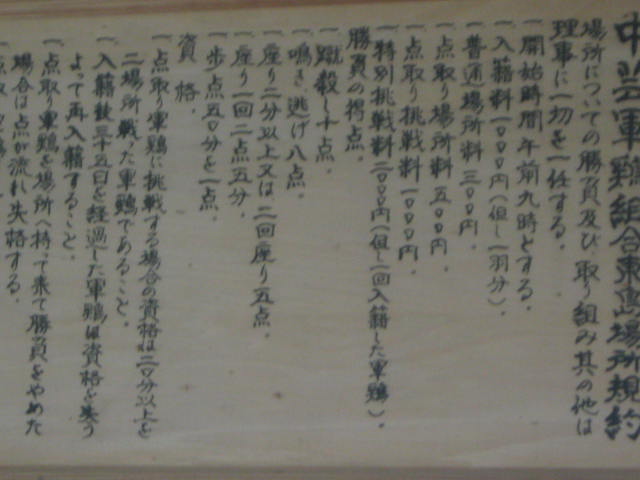 中芸軍鶏組合東島場所規約
場所についての勝負及び、取り組み其の他は
理事に一切を一任する。
一、開始時間午前九時とする。
一、入籍料一〇〇〇円(但し一羽分)。
一、普通場所料三〇〇円。
一、点取り場所料五〇〇円。
一、点取り挑戦料一〇〇〇円。
一、特別挑戦料二〇〇〇円(但し一回入籍した軍鶏)。
勝負の得点。
一、蹴殺し十点。
一、鳴き、逃げ八点。
一、座り二分以上又は、二回座り五点。
一、座り一回二点五分。
一、歩一点五〇分を一点。
資格。
一、点取り軍鶏に挑戦する場合の資格は二〇分以上を
二場所戦った軍鶏であること。
一、入籍後三十五日を経過した軍鶏は資格を失う
よって再入籍すること。
一、点取り軍鶏を場所へ持って来て勝負をやめた
場合は点が流れ失格する。